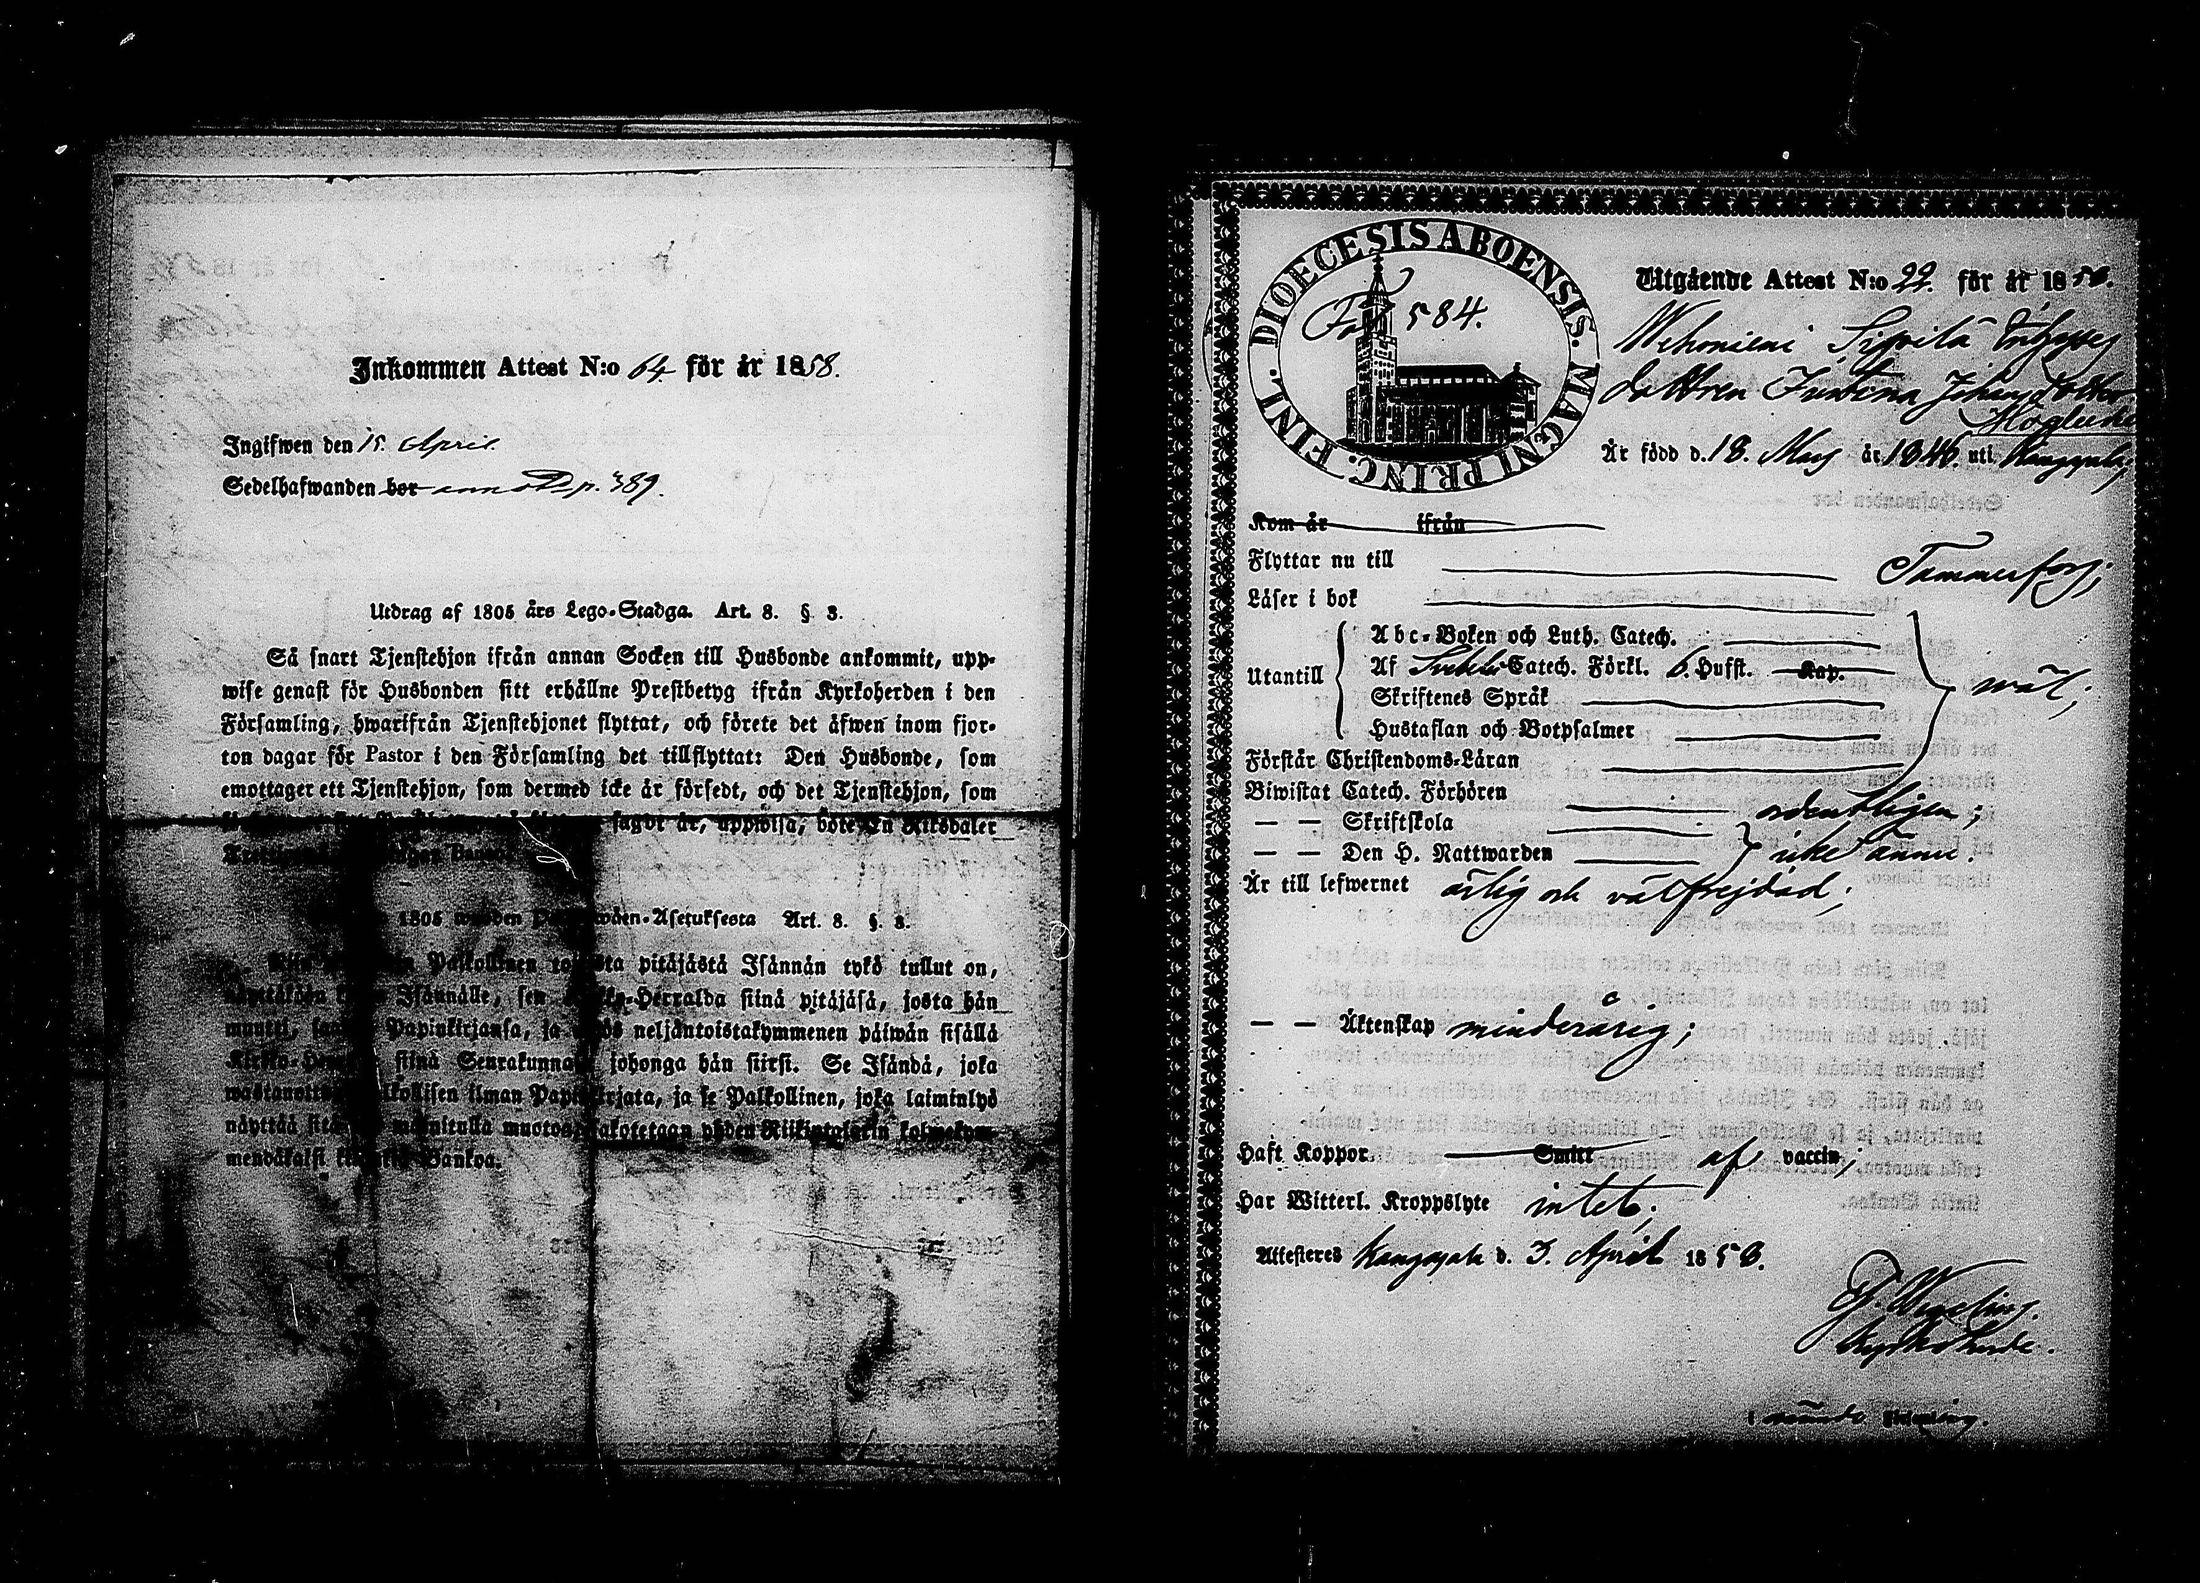 Inkommen Attest N:o 64. för år 1858.
Ingifwen den 15. April.
Sedelhafwanden bor annot. p. 389.
Utdrag af 1805 års Lego-Stadga. Art. 8. § 3.
Så snart Tjenstehjon ifrån annan Socken till Husbonde ankommit, upp-
wise genast för Husbonden sitt erhållne Prestbetyg ifrån Kyrkoherden i den
Församling, hwarifrån Tjenstehjonet flyttat, och förete det äfwen inom fjor-
ton dagar för Pastor i den Församling det tillflyttat: Den Husbonde, som
emottager ett Tjenstehjon, som dermed icke är försedt, och det Tjenstehjon, som
sagdt är, uppwisa, böte En Riksdaler
Banco.
1805 wuoden Asetuksesta Art. 8. §. 3.
Palkollinen pitäjästä Isännän tykö tullut on,
Isännälle, sen Herralda siinä pitäjäsä, josta hän
muutti, Papinkirjansa, ja neljäntoistakymmenen päiwän sisällä
siinä Seurakunnasa johonga hän siirsi. Se Isändä, joka
ilman Papinkirjata, ja se Palkollinen, joka laiminlyö
näyttää muotoa, sakotetaan yhden Riikintalarin kolmekym-
Bankoa.
DIOECESIS ABOENSIS. MAGNI PRINC. FINL.
Fol 584.
Utgående Attest N:o 22. för år 1858.
Wehoniemi Sipilä
dottren Johansdotter
Höglund
Är född d. 18. Maj år 1846. uti Kangasala
Kom år ifrån
Flyttar nu till Tammerfors;
Läser i bok
Utantill
Abc-Boken och Luth. Catech.
Af Svebelii Catech. Förkl. 6. Hufst. Kap.
Skriftenes Språk
Hustaflan och Botpsalmer
wäl;
Förstår Christendoms-Läran
Biwistat Catech. Förhören ordentligen;
— — Skriftskola
— — Den H. Nattwarden icke ännu.
Är till lefwernet ärlig och välfrejdad;
— — Äktenskap minderårig;
Haft Koppor Smitt af vaccin;
Har Witterl. Kroppslyte intet.
Attesteres Kangasala d. 3. April 1858.
Kyrkoherde.